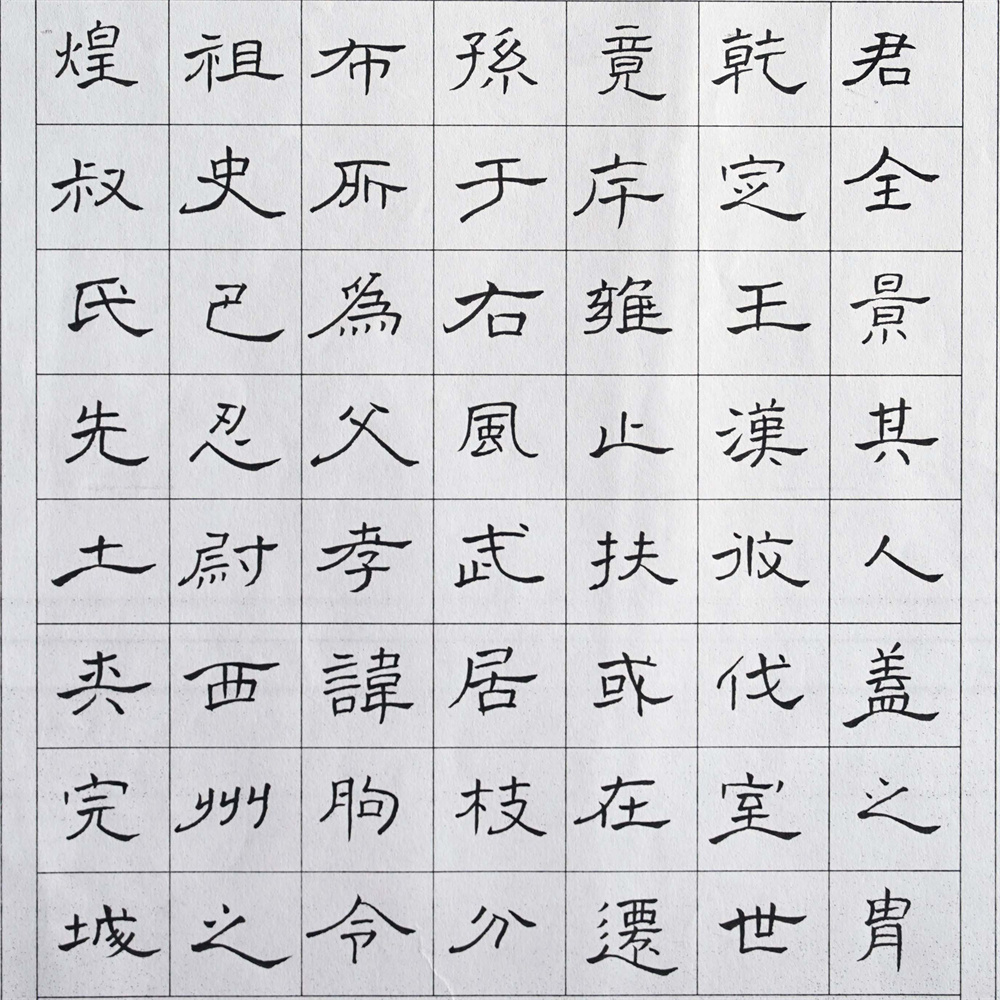 君全景其人蓋之胄
乾定王漢攸伐室世
竟序雍止扶或在遷
孫于右風武居枝分
布所為父孝諱朐令
祖史己忍尉西州之
煌叔氏先土夾完城